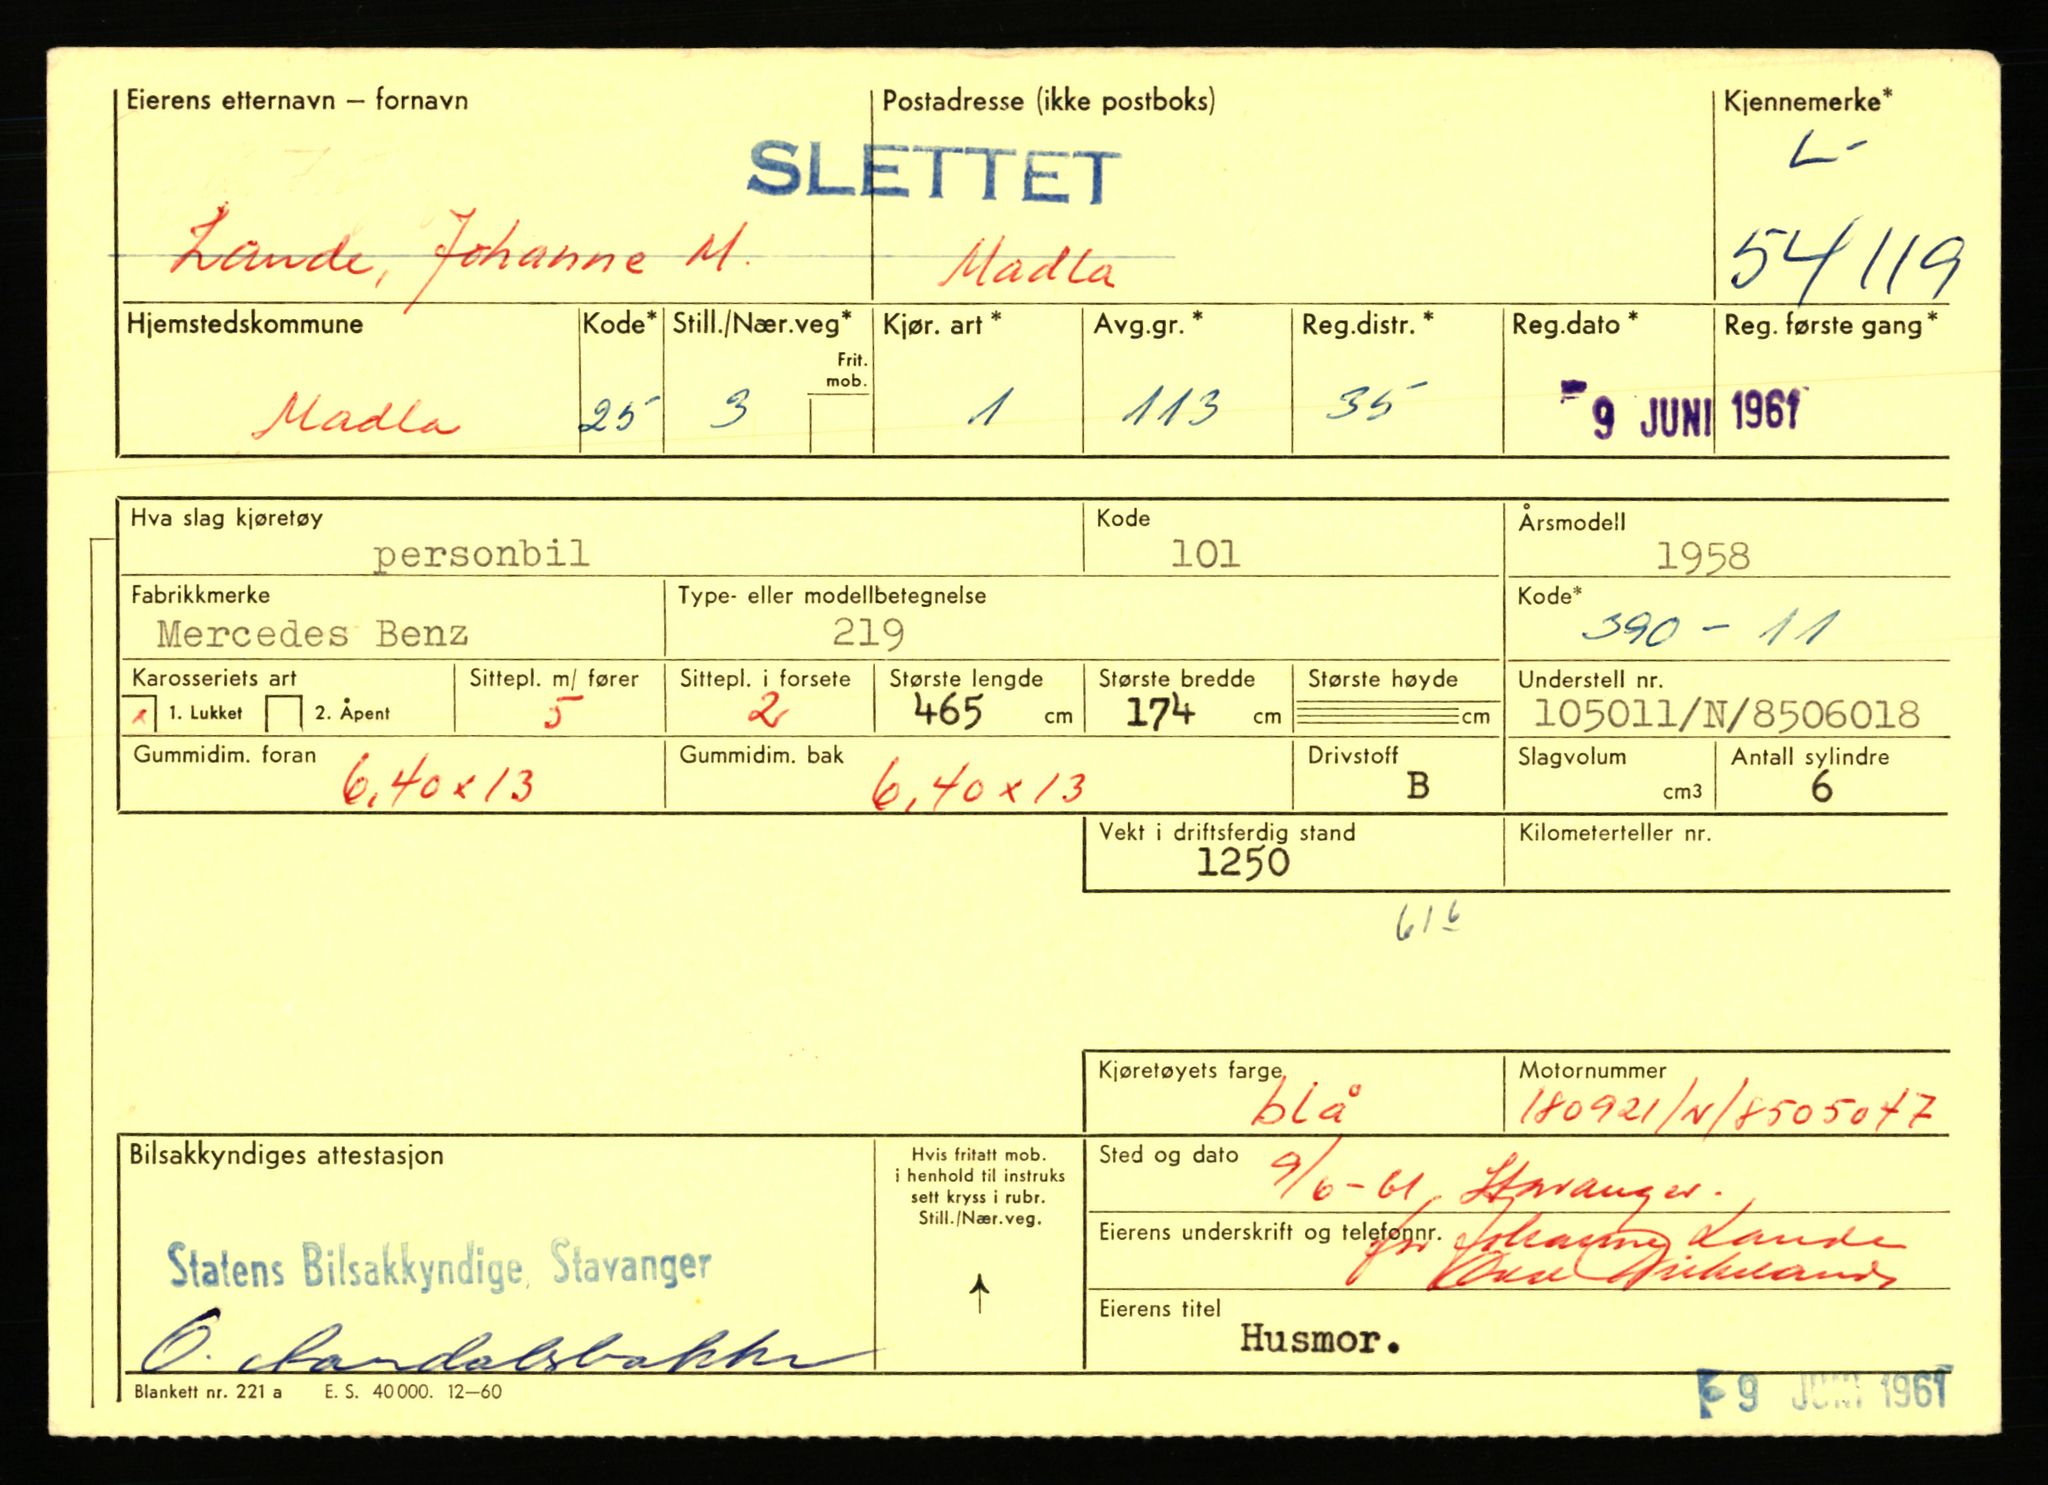 Eierens etternavn – fornavn
Postadresse (ikke postboks)
Kjennemerke*
SLETTET
L-
Lande, Johanne M.
Madla
54119
Hjemstedskommune
Kode*
Still./Nær.veg*
Frit. mob.
Kjør. art *
Avg.gr. *
Reg.distr. *
Reg.dato *
Reg. første gang*
Madla
25
3
1
113
35
9 JUNI 1961
Hva slag kjøretøy
personbil
Kode
101
Årsmodell
1958
Fabrikkmerke
Mercedes Benz
Type- eller modellbetegnelse
219
Kode*
390 - 11
Karosseriets art
x 1. Lukket 2. Åpent
Sittepl. m/ fører
5
Sittepl. i forsete
2
Største lengde
465 cm
Største bredde
174 cm
Største høyde
cm
Understell nr.
105011/N/8506018
Gummidim. foran
6,40 x 13
Gummidim. bak
6,40 x 13
Drivstoff
B
Slagvolum
cm3
Antall sylindre
6
Vekt i driftsferdig stand
1250
Kilometerteller nr.
61 6
Kjøretøyets farge
blå
Motornummer
180921/N/8505047
Bilsakkyndiges attestasjon
Statens Bilsakkyndige, Stavanger
Hvis fritatt mob.
i henhold til instruks
sett kryss i rubr.
Still./Nær.veg.
Sted og dato
9/6-61, Stavanger.
Eierens underskrift og telefonnr.
for Johanne Lande
Eierens titel
Husmor.
Blankett nr. 221 a E. S. 40 000. 12–60
9 JUNI 1961